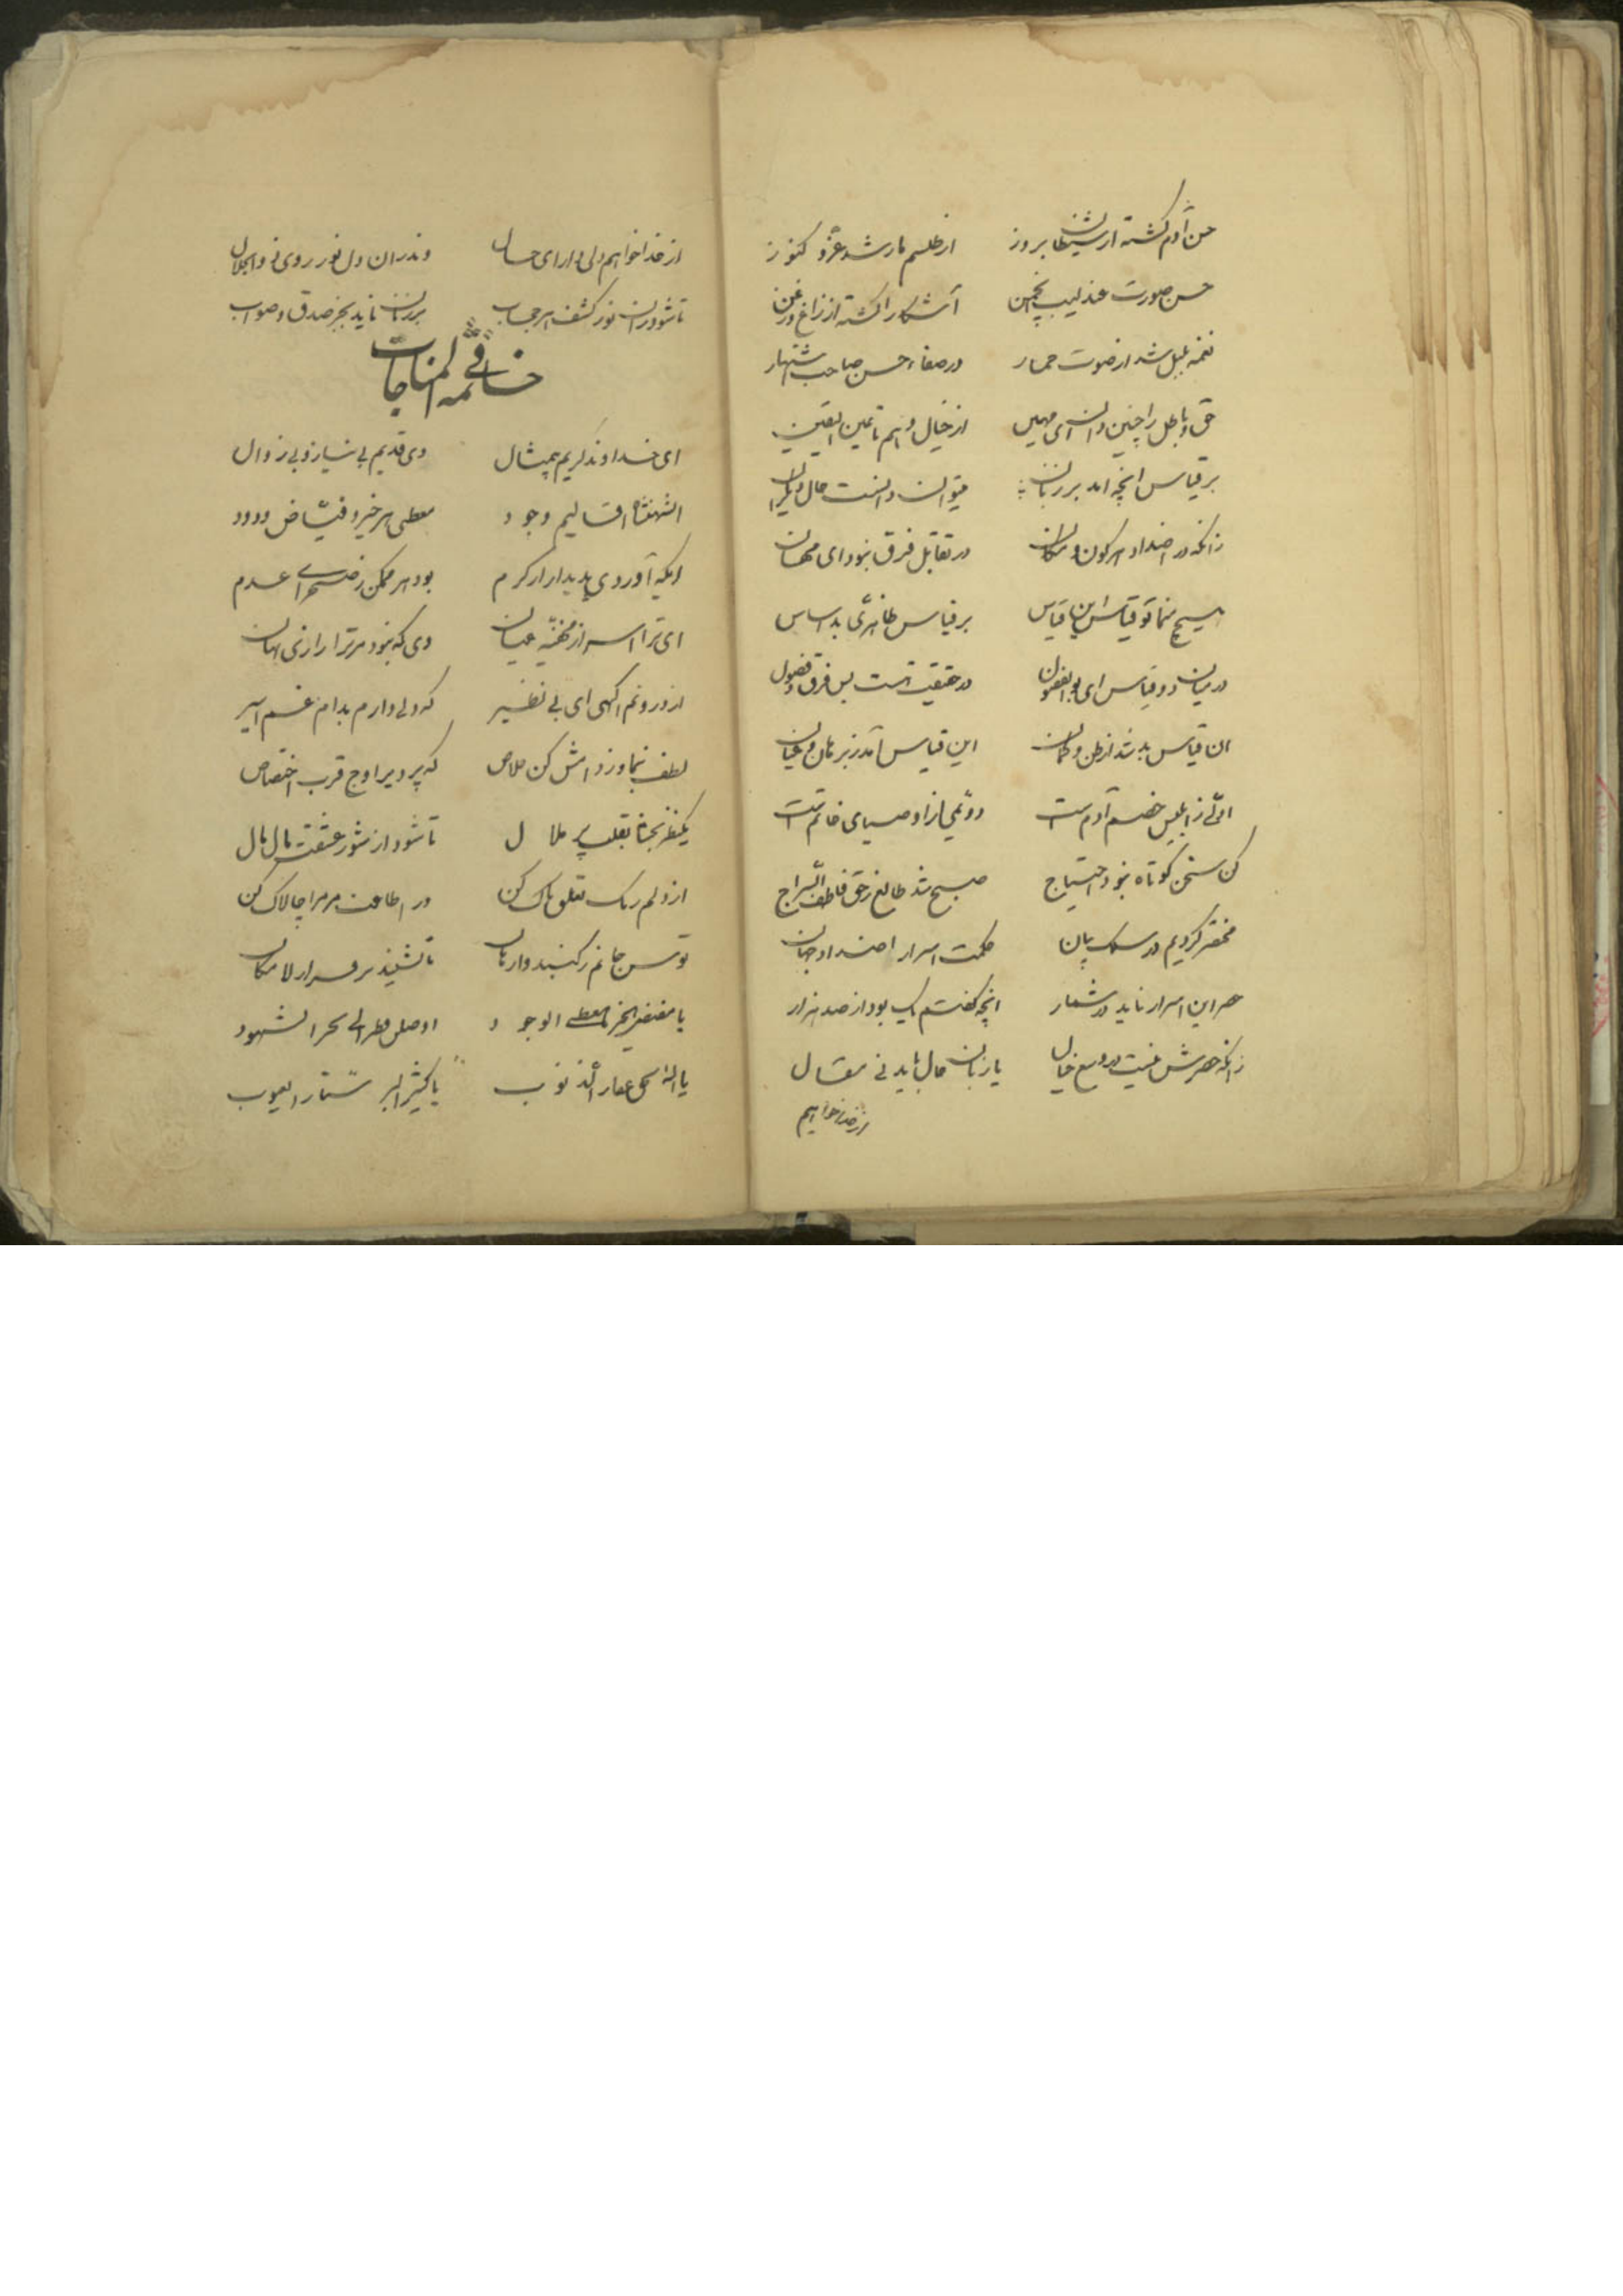 حسن آدم گشته از شیطان بروز از طلسم مار شد عز و کنوز
حسن صورت عندلیب انجمن آشکارا گشته از زاغ و زغن
نغمه بلبل شد از صوت حمار در صفا و حسن صاحب اشتهار
حق و باطل را چنین دان ای مهین از خیال و وهم تا عین الیقین
بر قیاس انچه امد بر زبان میتوان دانست حال دیگران
زانکه در اضداد هر کون و مکان در تقابل فرق نبود ای مهان
هیچ منما تو قیاس این با قیاس بر قیاس ظاهری بد اساس
در میان دو قیاس ای بوالفضول در حقیقت هست بس فرق و فضول
ان قیاس بد شد از ظن و گمان این قیاس آمد ز برهان و عیان
اولی ز ابلیس خصم آدم است دویمی از اوصیای خاتم است
کن سخن کوتاه نبود احتیاج صبح شد طالع ز حق فاطف السراج
مختصر کردیم در سلک بیان حکمت اسرار اضداد جهان
حصر این اسرار ناید در شمار انچه گفتم یک بود از صد هزار
زانکه حصرش نیست در وسع خیال با زبان حال باید نی مقال
از خدا خواهیم
از خدا خواهیم دلی دارای حال وندران دل نور روی ذوالجلال
تا شود زان نور کشف هر حجاب بر زبان ناید بجز صدق و صواب
خاتمه فی المناجات
ای خداوند کریم بیمثال وی قدیم بی نیاز و بی زوال
ای شهنشاه اقالیم وجود معطی هر خیر و فیاض ودود
ایکه آوردی پدیدار از کرم بود هر ممکن ز صحرای عدم
ای ترا اسرار مخفیه عیان وی که نبود مر ترا رازی نهان
از درونم اگهی ای بی نظیر که دلی دارم بدام غم اسیر
لطف بنما وز دامش کن خلاص که پرد بر اوج قرب اختصاص
یکنظر بخشا بقلب پر ملال تا شود از شور عشقت مال مال
از دلم رنگ تعلق پاک کن در اطاعت مر مرا چالاک کن
توسن جانم ز کنبد وارهان تا نشیند بر فراز لامکان
یا مفیض الخیر معطی الوجود اوصلن قطر الی بحر الشهود
یا اله الحق غفار الذنوب یا کثیر البر ستار العیوب